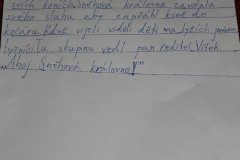 svich koních. Sněhová královna zavolala
svého sluhu aby zapřáhl koně do
kočáru. Když vyjeli viděli děti na lyžích
lyžníci. Tu skupinu vedl pan ředitel Vítek.
"Ahoj Sněhová královno!"